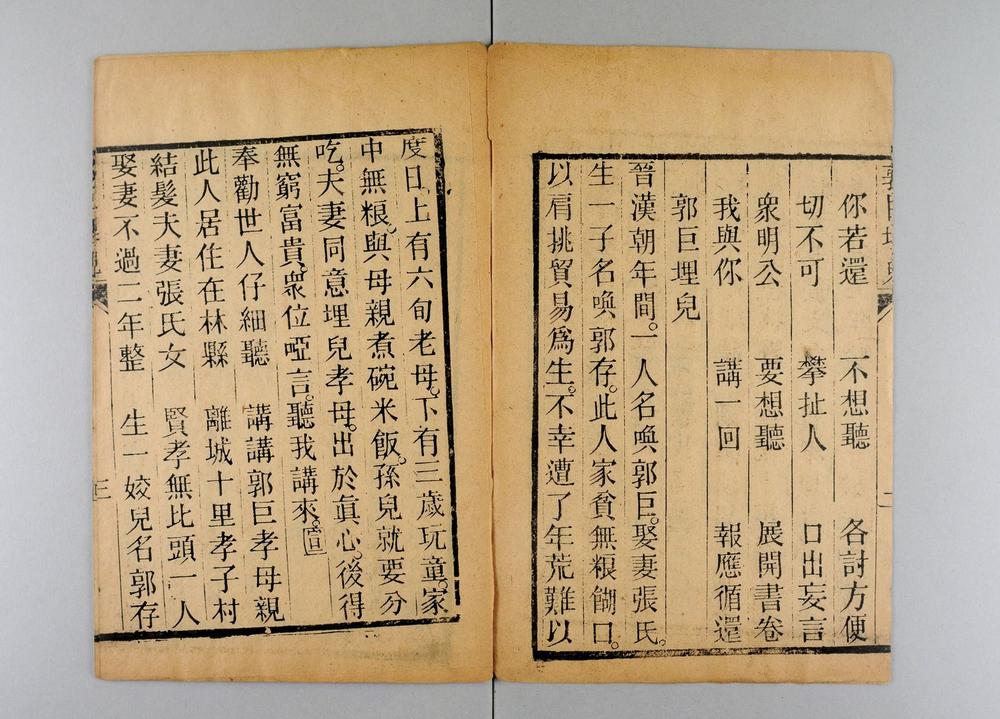 你若還　不想聽　各討方便
切不可　攀扯人　口出妄言
衆明公　要想聽　展開書卷
我與你　講一回　報應循還
郭巨埋兒
晉漢朝年間。一人名喚郭巨。娶妻張氏。
生一子名喚郭存。此人家貧無粮餬口。
以肩挑貿易爲生。不幸遭了年荒難以
度日、上有六旬老母。下有三歲玩童。家
中無粮。與母親煮碗米飯。孫兒就要分
吃。夫妻同意埋兒孝母。出於眞心。後得
無窮富貴。衆位啞言。聽我講來。
奉勸世人仔細聽　講講郭巨孝母親
此人居住在林縣　離城十里孝子村
結髮夫妻張氏女　賢孝無比頭一人
娶妻不過二年整　生一姣兒名郭存
三